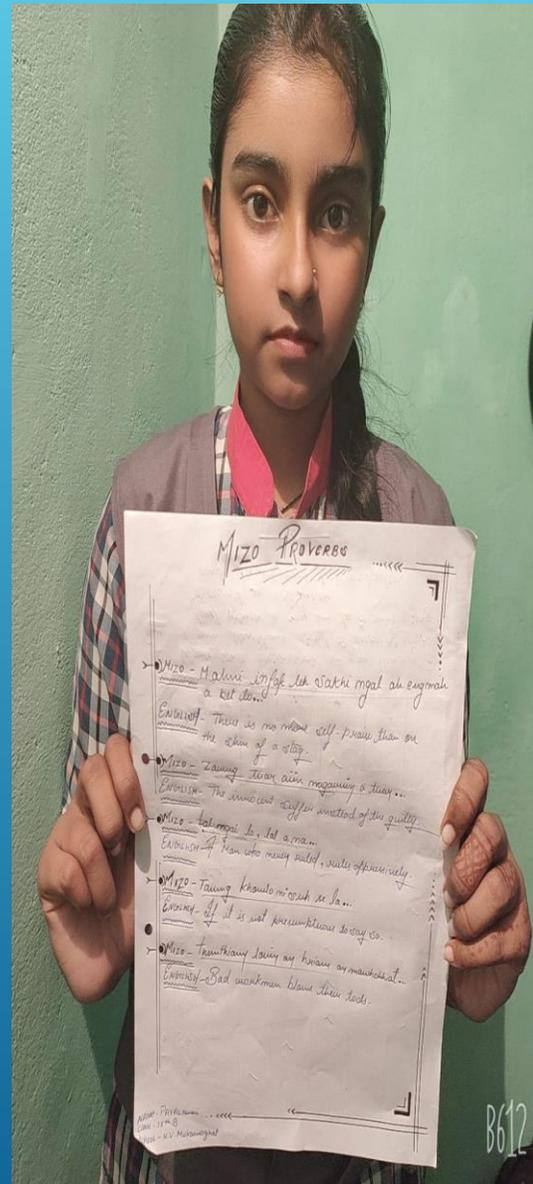 MIZO PROVERBS
MIZO - Mahni infak leh sakhi ngal ah engmah
a bet lo...
ENGLISH - There is no more self-praise than on
the shin of a stag.
MIZO - Zawng tuar aiin ngauin a tuar...
ENGLISH - The innocent suffer instead of the guilty.
MIZO - lal ngai lo, lal a na...
ENGLISH - A Man who never ruled, rules oppressively.
MIZO - Tawng khawlo ni suh se la...
ENGLISH - If it is not presumptuous to say so.
MIZO - Themthiang lovin an hriam an
ENGLISH - Bad workmen blame their tools.
NAME -
CLASS - B
School - K.V.
B612